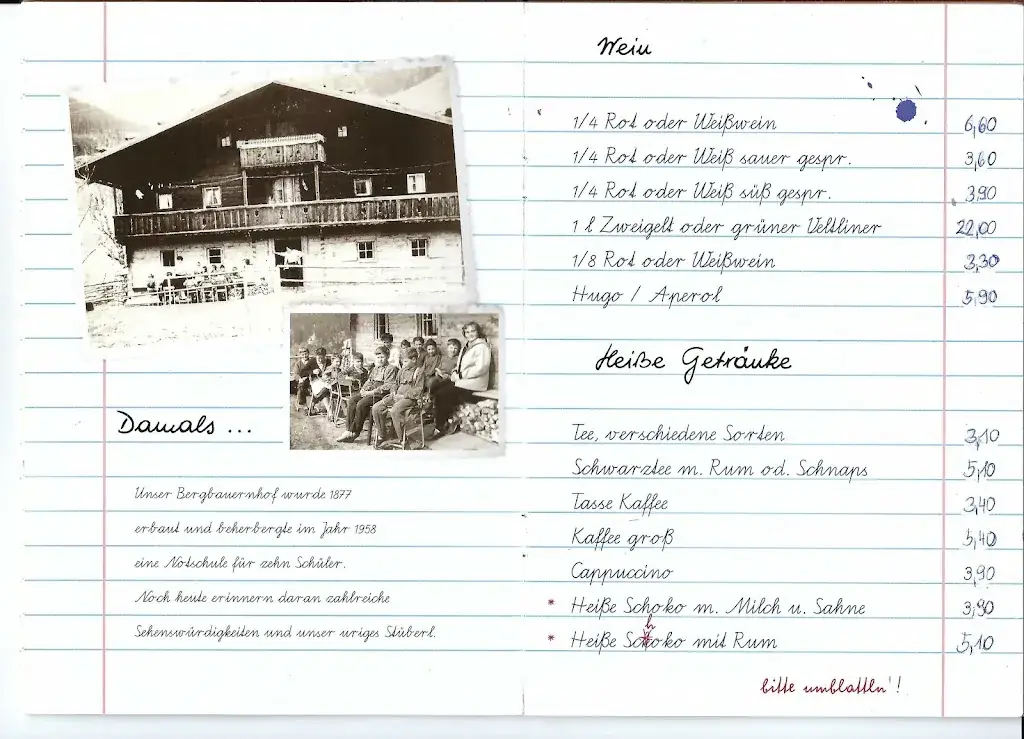 Damals ...
Unser Bergbauernhof wurde 1877
erbaut und beherbergte im Jahr 1958
eine Notschule für zehn Schüler.
Noch heute erinnern daran zahlreiche
Sehenswürdigkeiten und unser uriges Stüberl.
Wein
1/4 Rot oder Weißwein 6,60
1/4 Rot oder Weiß sauer gespr. 3,60
1/4 Rot oder Weiß süß gespr. 3,90
1 l Zweigelt oder grüner Veltliner 22,00
1/8 Rot oder Weißwein 3,30
Hugo / Aperol 5,90
Heiße Getränke
Tee, verschiedene Sorten 3,10
Schwarztee m. Rum od. Schnaps 5,10
Tasse Kaffee 3,40
Kaffee groß 5,40
Cappuccino 3,90
* Heiße Schoko m. Milch u. Sahne 3,90
* Heiße Schoko mit Rum 5,10
bitte umblattln'!